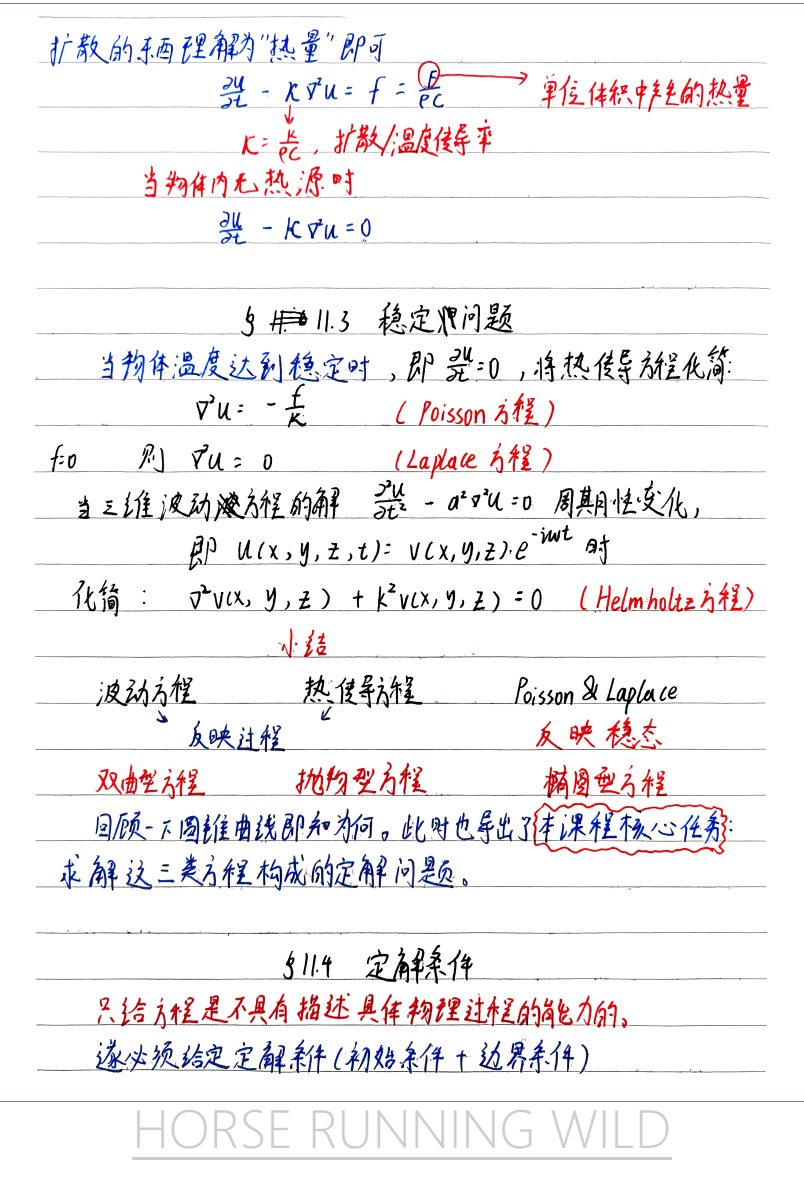 扩散的东西理解为"热量"即可
∂u/∂t - κ∇²u = f = F/ρc → 单位体积中产生的热量
κ = k/ρc , 扩散/温度传导率
当物体内无热源时
∂u/∂t - κ∇²u = 0
§ 11.3 稳定问题
当物体温度达到稳定时，即 ∂u/∂t = 0，将热传导方程化简:
∇²u = - f/κ （Poisson 方程）
f=0 则 ∇²u = 0 （Laplace 方程）
当三维波动方程的解 ∂²u/∂t² - a²∇²u = 0 周期性变化，
即 u(x, y, z, t) = v(x, y, z)·e^-iωt 时
化简： ∇²v(x, y, z) + k²v(x, y, z) = 0 （Helmholtz方程）
小结
波动方程 热传导方程 Poisson & Laplace
反映过程 反映稳态
双曲型方程 抛物型方程 椭圆型方程
回顾一下圆锥曲线即知为何。此时也导出了本课程核心任务:
求解这三类方程构成的定解问题。
§11.4 定解条件
只给方程是不具有描述具体物理过程的能力的。
遂必须给定定解条件（初始条件 + 边界条件）
HORSE RUNNING WILD